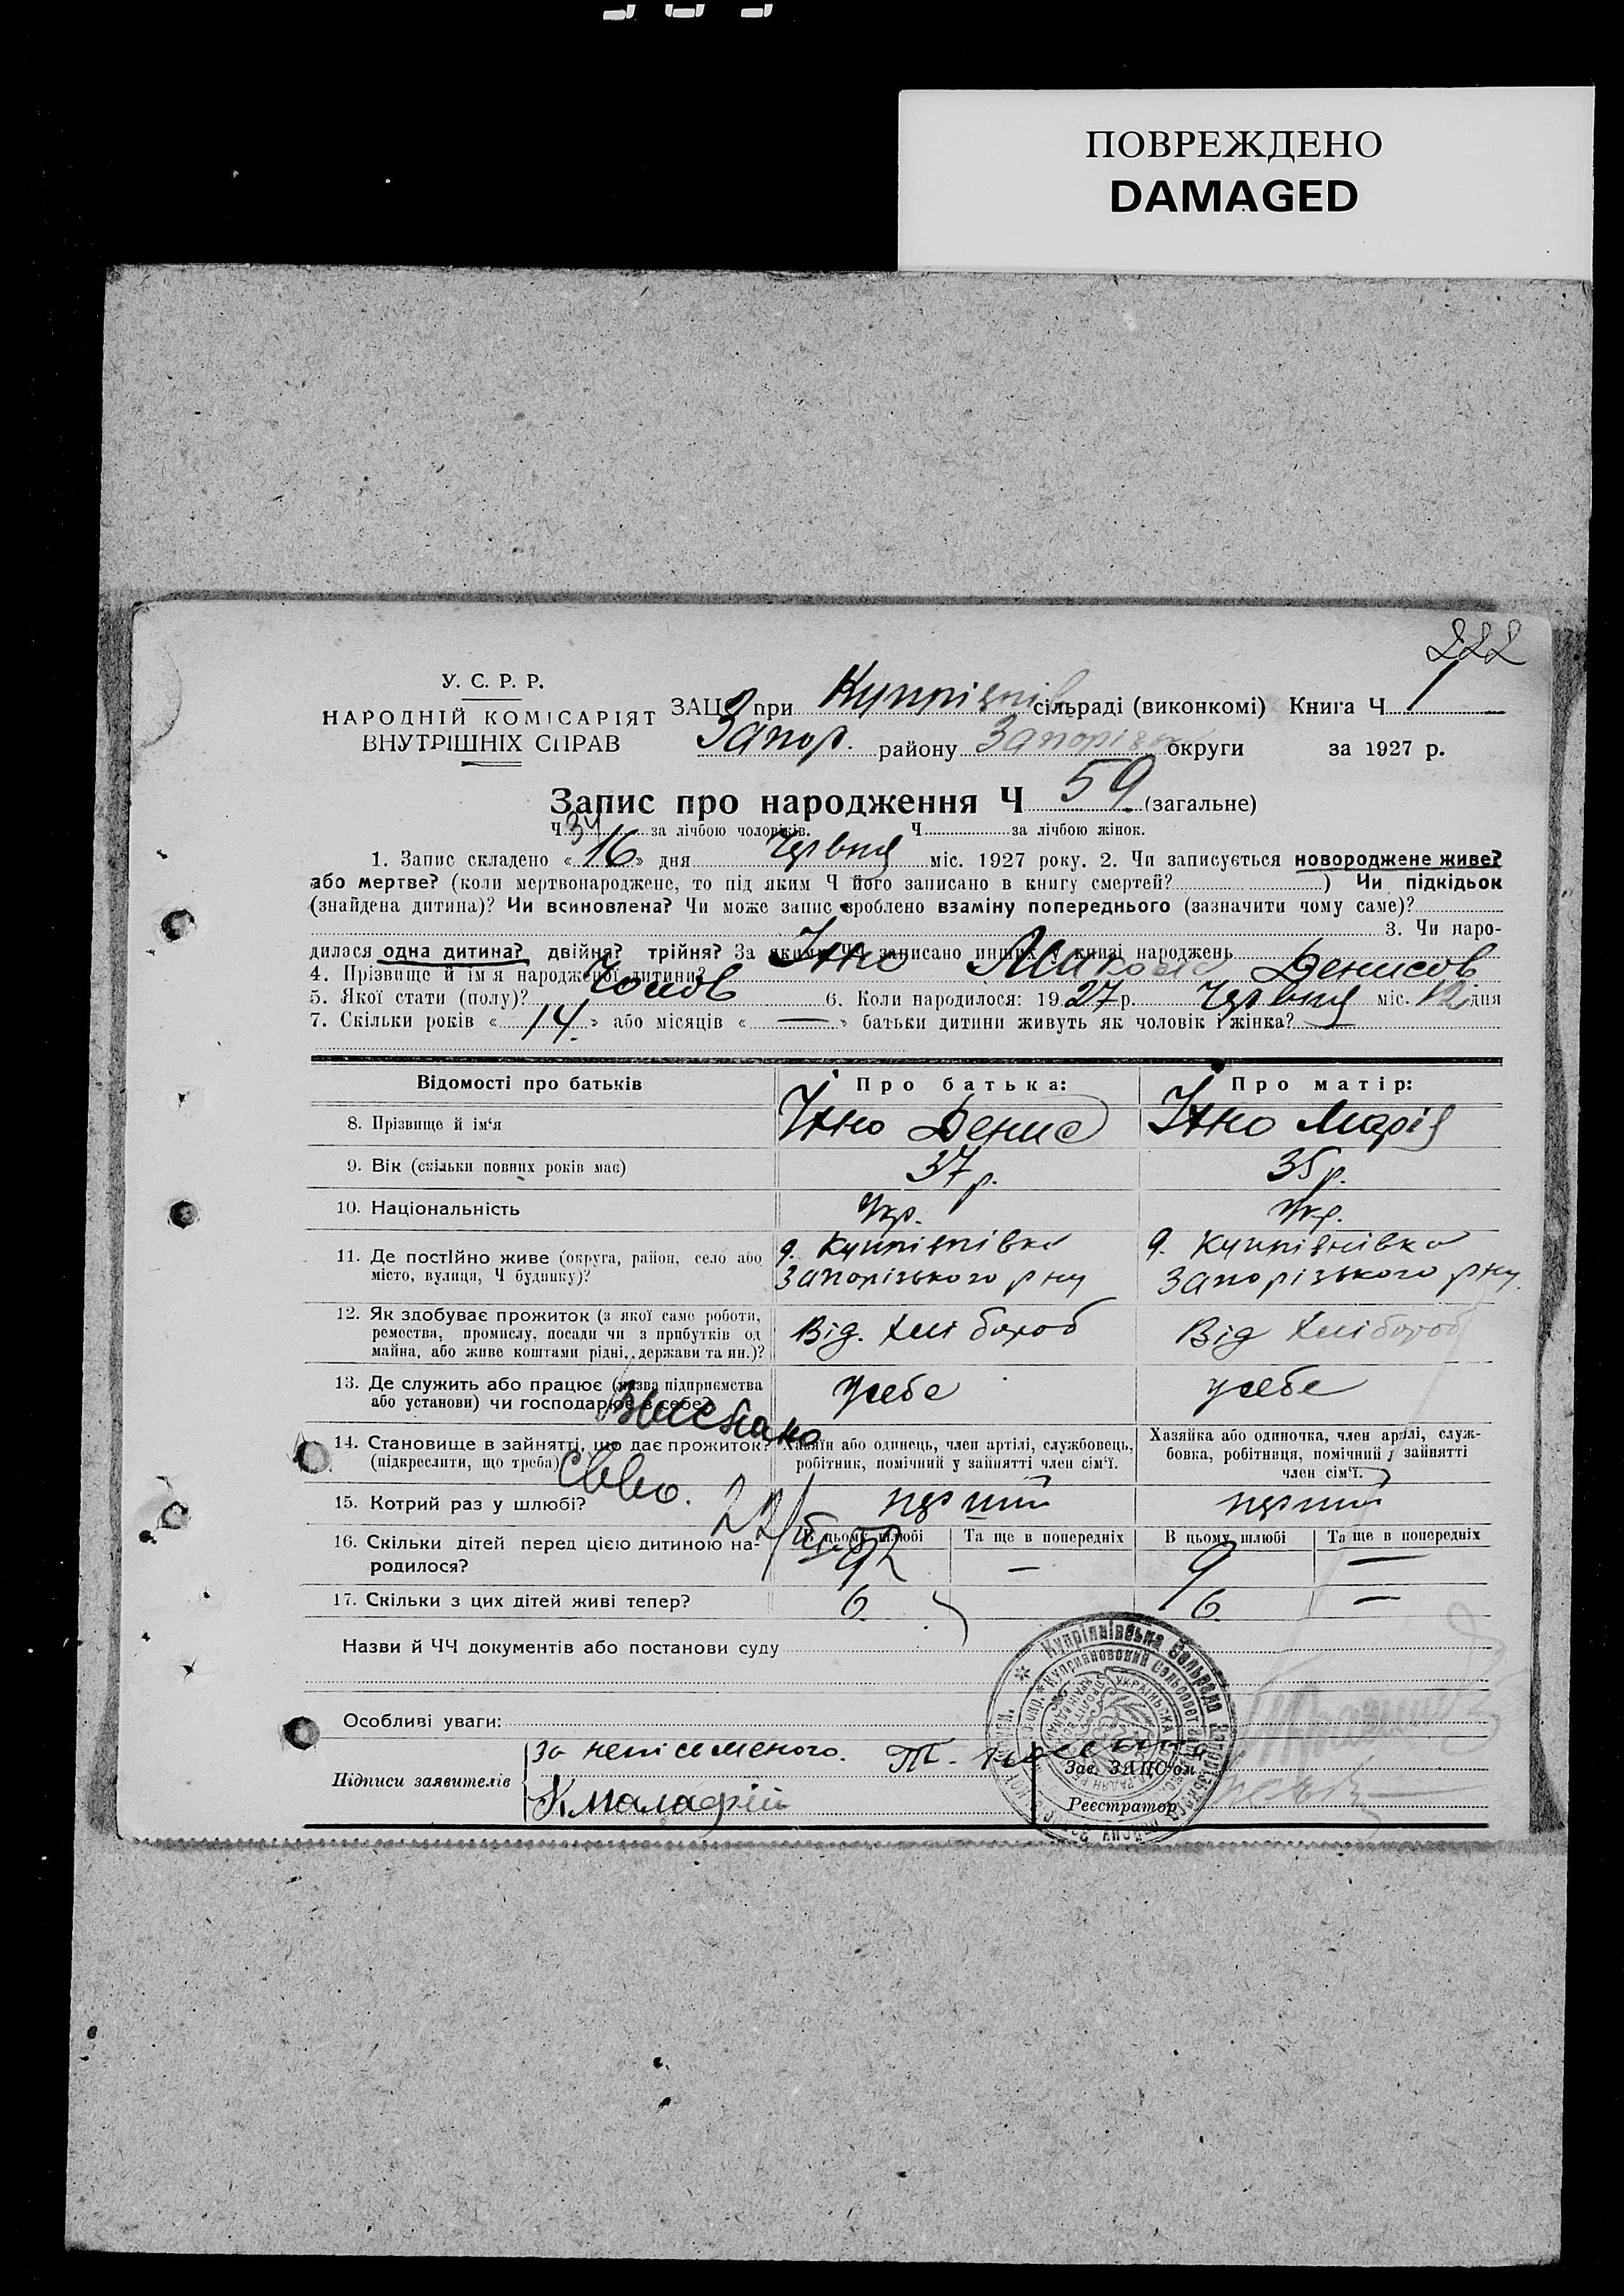 ПОВРЕЖДЕНО
DAMAGED
222
У. С. Р. Р.
НАРОДНІЙ КОМІСАРІЯТ
ВНУТРІШНІХ СПРАВ
ЗАЦС при сільраді (виконкомі) Книга Ч 1
Запор. району Запорізьк округи за 1927 р.
Запис про народження Ч 59 (загальне)
Ч 34 за лічбою чоловіків. Ч за лічбою жінок.
1. Запис складено « 16 » дня Червня міс. 1927 року. 2. Чи записується новороджене живе?
або мертве? (коли мертвонароджене, то під яким Ч його записано в книгу смертей? ) Чи підкідьок
(знайдена дитина)? Чи всиновлена? Чи може запис зроблено взаміну попереднього (зазначити чому саме)?
3. Чи наро-
дилася одна дитина? двійня? трійня? За якими ЧЧ записано инших у книзі народжень
4. Прізвище й ім'я народженої дитини? Микола Денисов
5. Якої стати (полу)? Чолов 6. Коли народилося: 1927 р. Червня міс. 12 дня
7. Скільки років « 14. » або місяців « — » батьки дитини живуть як чоловік і жінка? —
Відомості про батьків Про батька: Про матір:
8. Прізвище й ім'я Денис Марія
9. Вік (скільки повних років має) 37 р. 35 р.
10. Національність Укр. Укр.
11. Де постійно живе (округа, район, село або
місто, вулиця, Ч будинку)?
Запорізького рну Запорізького рну.
12. Як здобуває прожиток (з якої саме роботи,
ремества, промислу, посади чи з прибутків од
майна, або живе коштами рідні, держави та ин.)?
Від. хлібороб Від хлібороб
13. Де служить або працює (назва підприємства
або установи) чи господарює в себе?
Усебе усебе
Вислано
14. Становище в зайнятті, що дає прожиток?
(підкреслити, що треба)
Хазяїн або одинець, член артілі, службовець,
робітник, помічний у зайнятті член сім'ї.
Хазяйка або одиночка, член артілі, служ-
бовка, робітниця, помічний у зайнятті
член сім'ї.
15. Котрий раз у шлюбі? перший перший
16. Скільки дітей перед цією дитиною на-
родилося?
В цьому шлюбі Та ще в попередніх В цьому шлюбі Та ще в попередніх
9 — 9 —
17. Скільки з цих дітей живі тепер? 6. 6. —
Назви й ЧЧ документів або постанови суду
Особливі уваги:
Підписи заявителів
за неписьменого.
Зав. ЗАЦС'ом
Реєстратор